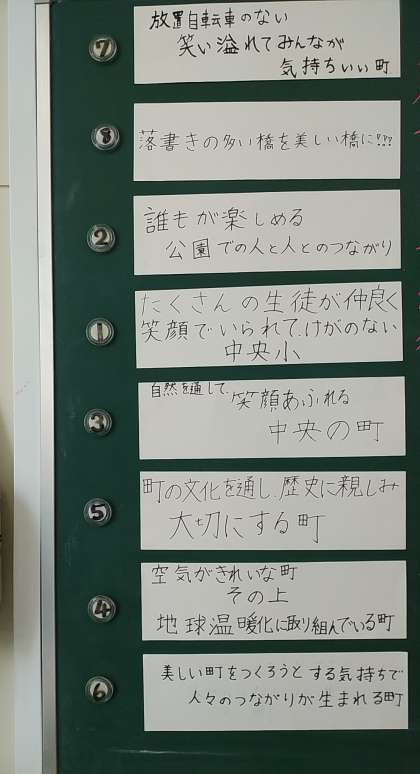 7
放置自転車のない
笑い溢れてみんなが
気持ちいい町
8
落書きの多い橋を美しい橋に!!!
2
誰もが楽しめる
公園での人と人とのつながり
1
たくさんの生徒が仲良く
笑顔でいられて、けがのない
中央小
3
自然を通して、
笑顔あふれる
中央の町
5
町の文化を通し、歴史に親しみ
大切にする町
4
空気がきれいな町
その上
地球温暖化に取り組んでいる町
6
美しい町をつくろうとする気持ちで
人々のつながりが生まれる町